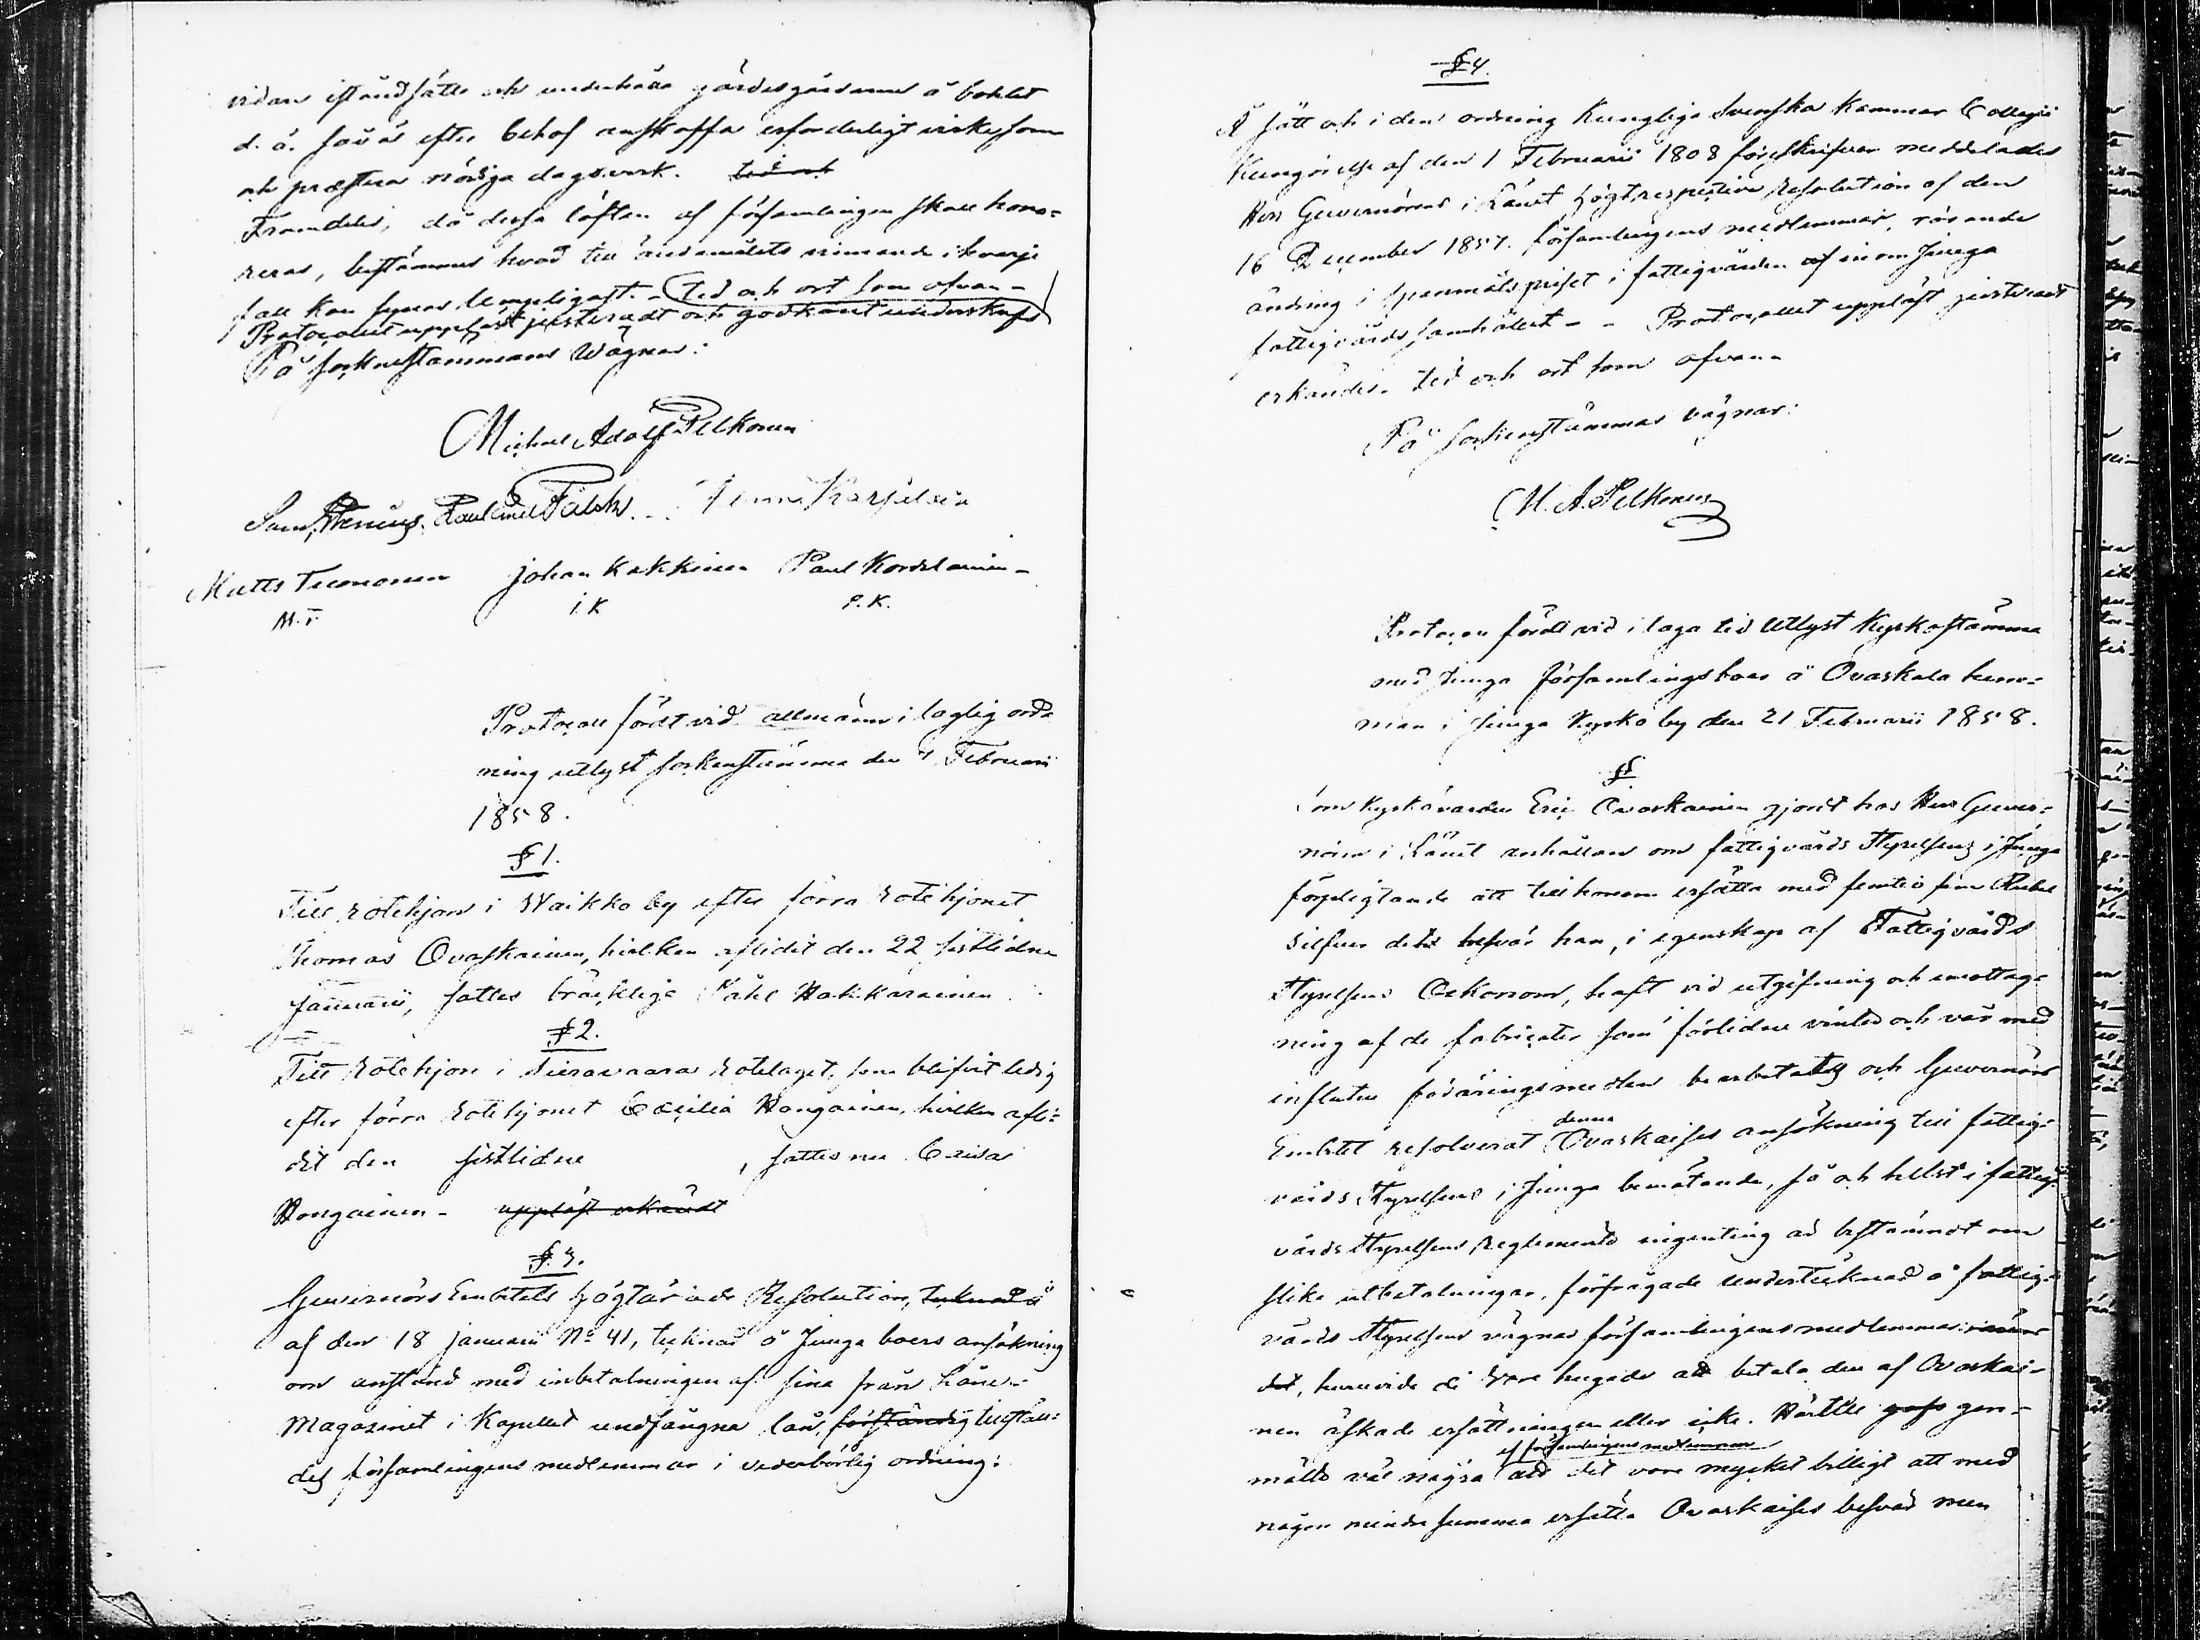 vidare iståndsätta och underhålla gärdesgårdarne å bohlet
d. ä. såväl efter behof anskaffa erforderligt virke som
ock præstera nödiga dagsverk. tid och
Framdeles, då dessa löften af församlingen skall hono-
reras, bestämmes hvad till ändamålets vinnande i hvarje
fall kan synas lämpeligast. - tid och ort som ofvan -
Protocollet uppläst justeradt och godkändt underskrifs
På sockenstämmans Wägnar:
Michael Adolf Pelkonen
Sam. Paul Emil Fälck
Matts Tuononen Johan Kakkinen Paul Kordelainen -
M.T. I.K P.K.
Protocoll fördt vid allmänn i laglig ord-
ning utlyst sockenstämma den 7 Februarii
1858.
§ 1.
Till rotehjon i Waikko by efter förra rotehjonet
Thomas Ovaskainen, hvilken aflidit den 22 sistlidne
Januarii, sattes bräcklige Påhl Hakkarainen.
§ 2.
Till rotehjon i rotelaget, som blifvit ledig
efter förra rotehjonet Cæcilia Hongainen, hvilken afli-
dit den sistlidne , sattes nu Caisa
Hongainen - uppläst erkändt
§. 3.
Guvernörs Embetets högtärade Resolution, tecknad å
af den 18 januarii No 41, tecknad å Juuga boers ansökning
om anstånd med inbetalningen af sina från Låne-
Magazinet i Kapellet undfångna lån, förständig tillstäl-
des församlingens medlemmar i vederbörlig ordning:
§ 4.
Å sätt och i den ordning Kunglige Svenska Kammar Collegii
Kungörelse af den 1 Februarii 1808 föreskrifver meddelades
Herr Guvernörens i Länet högtrespective resolution af den
16 December 1857. församlingens medlemmar, rörande
ändring i Spanmåls priset i fattigvården af inom Juuga
fattigvårds samhället - - Protocollet uppläst justeradt
erkändes. tid och ort som ofvan -
På sockenstämmas vägnar:
M. A. Pelkonen
Protocoll fördt vid i laga tid Utlyst Kyrkostämma
med Juuga församlingsboer å Ovaskala hem-
man i Juuga Kyrko by den 21 Februarii 1858.
§
Som Kyrkovärden Eric Ovaskainen gjordt hos Herr Guver-
nören i Länet anhållan om fattigvårds Styrelsens i Juuga
förpligtande att till honom ersätta med femtio sju Rubel
silfver dels besvär han, i egenskap af Fattigvårds
Styrelsens Oekonom, haft vid utgifning och emottag-
ning af de fabricater som förlidne vinter och vår med
influtne medlen bearbetats och Guvernörs
Embetet resolverat denne Ovaskaises ansökning till fattig-
vårds Styrelsens i Juuga bemötande, så och hellst i fattig-
vårds Styrelsens Reglemente ingenting är bestämdt om
slika utbetalningar, förfrågade undertecknad å fattig-
vårds Styrelsens vägnar församlingens medlemmar
det, huruvida de vore hugade att betala den af Ovaskai-
nen äskade ersättningen eller icke. Härtill gen-
mälte väl några af församlingens medlemmar att det vore mycket billigt att med
någon mindre summa ersätta Ovaskaises besvär men